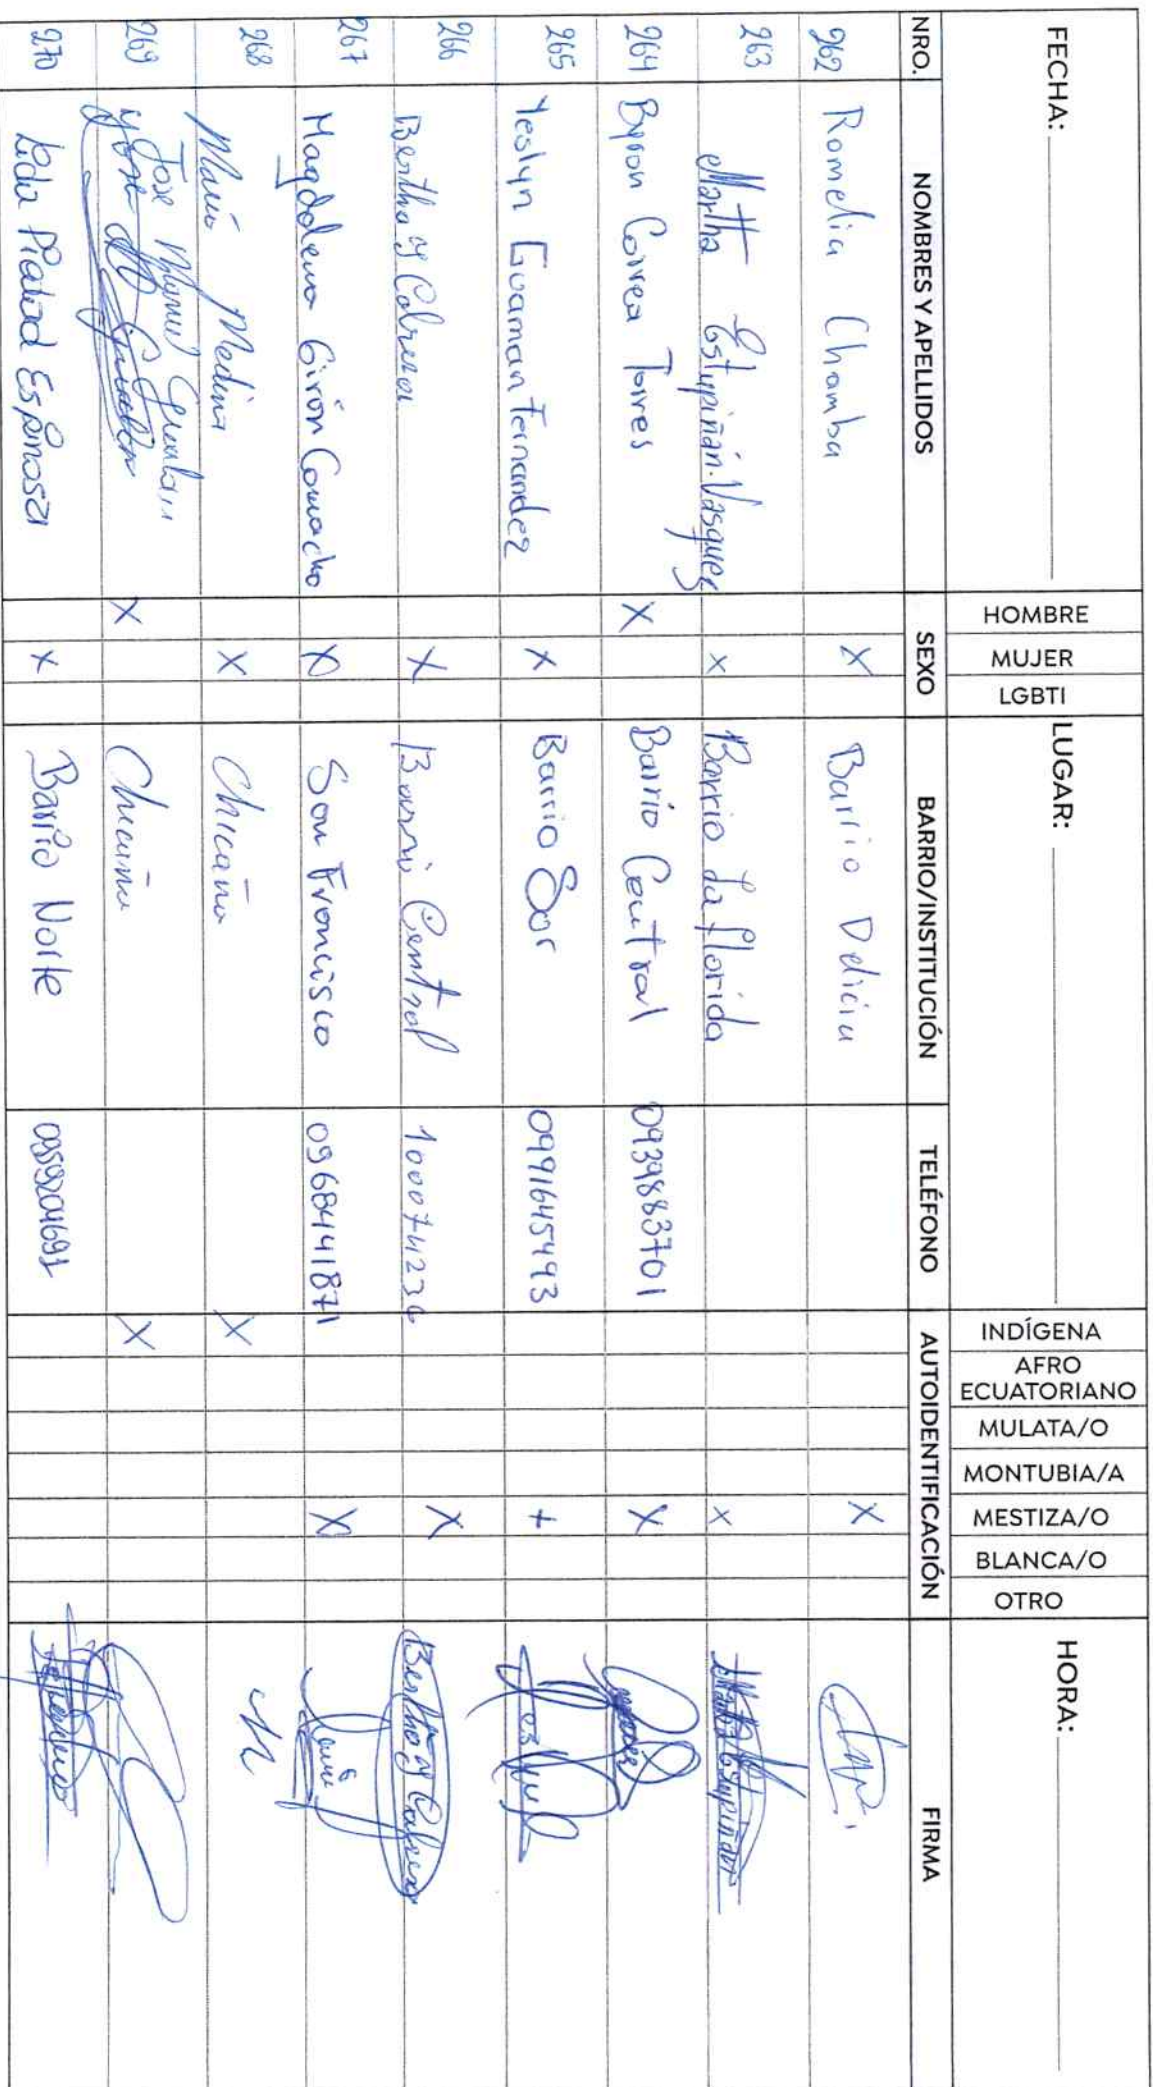 FECHA: LUGAR: HORA:
NRO. NOMBRES Y APELLIDOS SEXO HOMBRE MUJER LGBTI BARRIO/INSTITUCIÓN TELÉFONO AUTOIDENTIFICACIÓN INDÍGENA AFRO ECUATORIANO MULATA/O MONTUBIA/A MESTIZA/O BLANCA/O OTRO FIRMA
262 Romelia Chamba X Barrio Delicia X
263 Martha Estupiñán Vásquez x Barrio La florida x Martha Estupiñán
264 Byron Correa Torres X Barrio Central 0939883701 X
265 Yeslyn Guaman Fernandez x Barrio Sur +
266 Bertha y Cabrera X Barrio Central X Bertha y Cabrera
267 Magdalena Girón Camacho X San Francisco 0968441871 X
268 María Medina X Chicaña X
269 Jose Manuel X Chicaña X
270 Piedad Espinosa x Barrio Norte